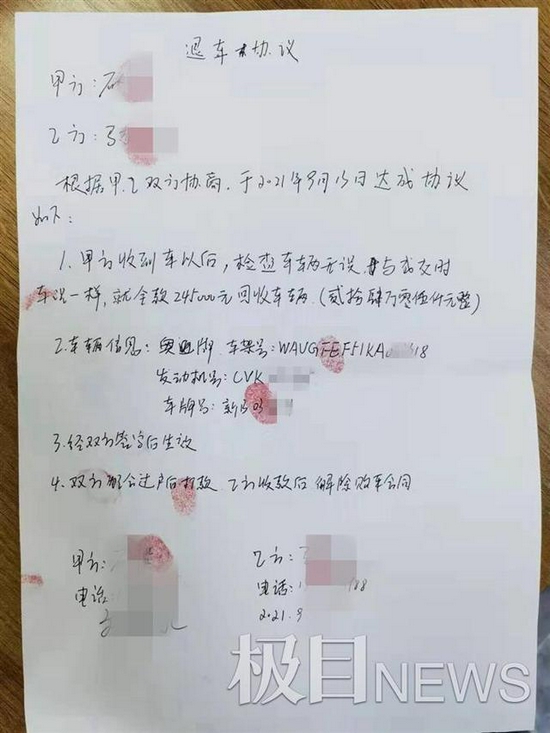 退车协议
甲方:石
乙方:
根据甲乙双方协商,于2021年9月15日达成协议
如下:
1.甲方收到车以后,检查车辆无误,与成交时
车况一样,就全款245000元回收车辆.(贰拾肆万零伍仟元整)
2.车辆信息:奥迪牌 车架号:WAUGFEFF1KA 18
发动机号:CVK
车牌号:新
3.经双方签字后生效
4.双方配合过户后打款 乙方收款后解除购车合同
甲方: 乙方:
电话: 电话:1 188
2021.9
极目NEWS